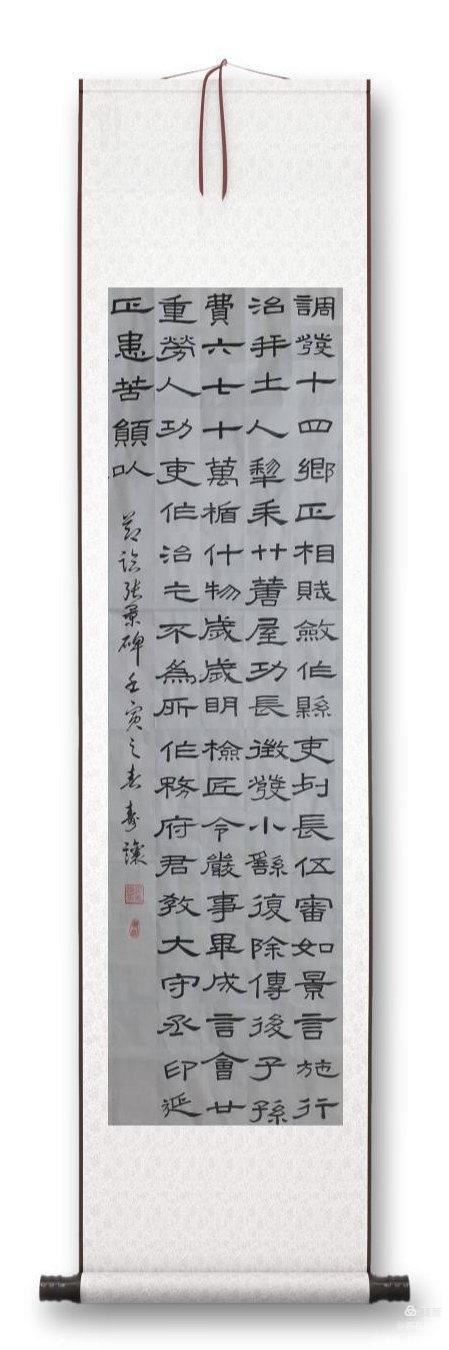 調發十四鄉正相賦斂作縣吏列長伍審如景言施行
治并土人犂耒艹蓐屋功長徵發小繇復除傳後子孫
費六七十萬楯什物歲歲明檢匠令嚴事畢成言會廿
重勞人功吏作治乞不為所作務府君教大守丞印延
正患苦願以
節臨張景碑壬寅之春壽讓